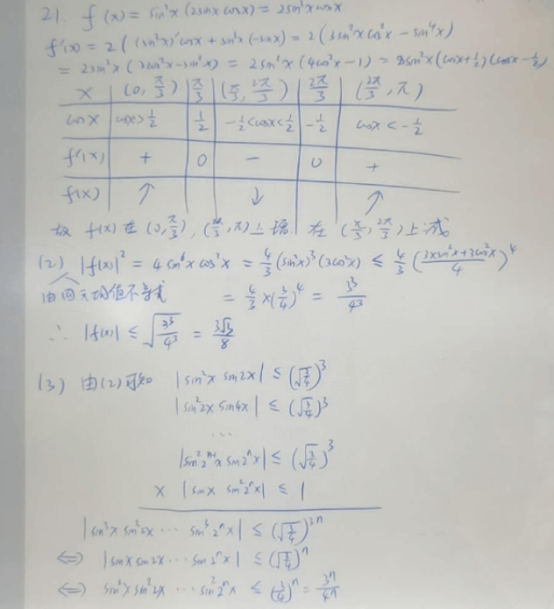 21. f(x) = sin²x (2sinx cosx) = 2sin³x cosx
f'(x) = 2 ( (sin³x)'cosx + sin³x (-sinx) = 2 (3sin²x cos²x - sin⁴x)
= 2sin²x (3cos²x - sin²x) = 2sin²x (4cos²x - 1) = 8sin²x (cosx + 1/2) (cosx - 1/2)
x (0, π/3) π/3 (π/3, 2π/3) 2π/3 (2π/3, π)
cosx cosx > 1/2 1/2 -1/2 < cosx < 1/2 -1/2 cosx < -1/2
f'(x) + 0 - 0 +
f(x) ↑ ↓ ↑
故 f(x) 在 (0, π/3), (2π/3, π) 上增 在 (π/3, 2π/3) 上减
(2) |f(x)|² = 4 sin⁶x cos²x = 4/3 (sin²x)³ (3cos²x) ≤ 4/3 ( (3sin²x + 3cos²x)/4 )⁴
由四元均值不等式 = 4/3 × (3/4)⁴ = 3³/4³
∴ |f(x)| ≤ √(3³/4³) = 3√3/8
(3) 由(2)可知 |sin²x sin2x| ≤ (√(3/4))³
|sin²2x sin4x| ≤ (√(3/4))³
...
|sin²2ⁿ⁻¹x sin2ⁿx| ≤ (√(3/4))³
× |sinx sin²2ⁿx| ≤ 1
|sin³x sin³2x ··· sin³2ⁿx| ≤ (√(3/4))³ⁿ
⇔ |sinx sin2x ··· sin2ⁿx| ≤ (√(3/4))ⁿ
⇔ sin²x sin²2x ··· sin²2ⁿx ≤ (3/4)ⁿ = 3ⁿ/4ⁿ